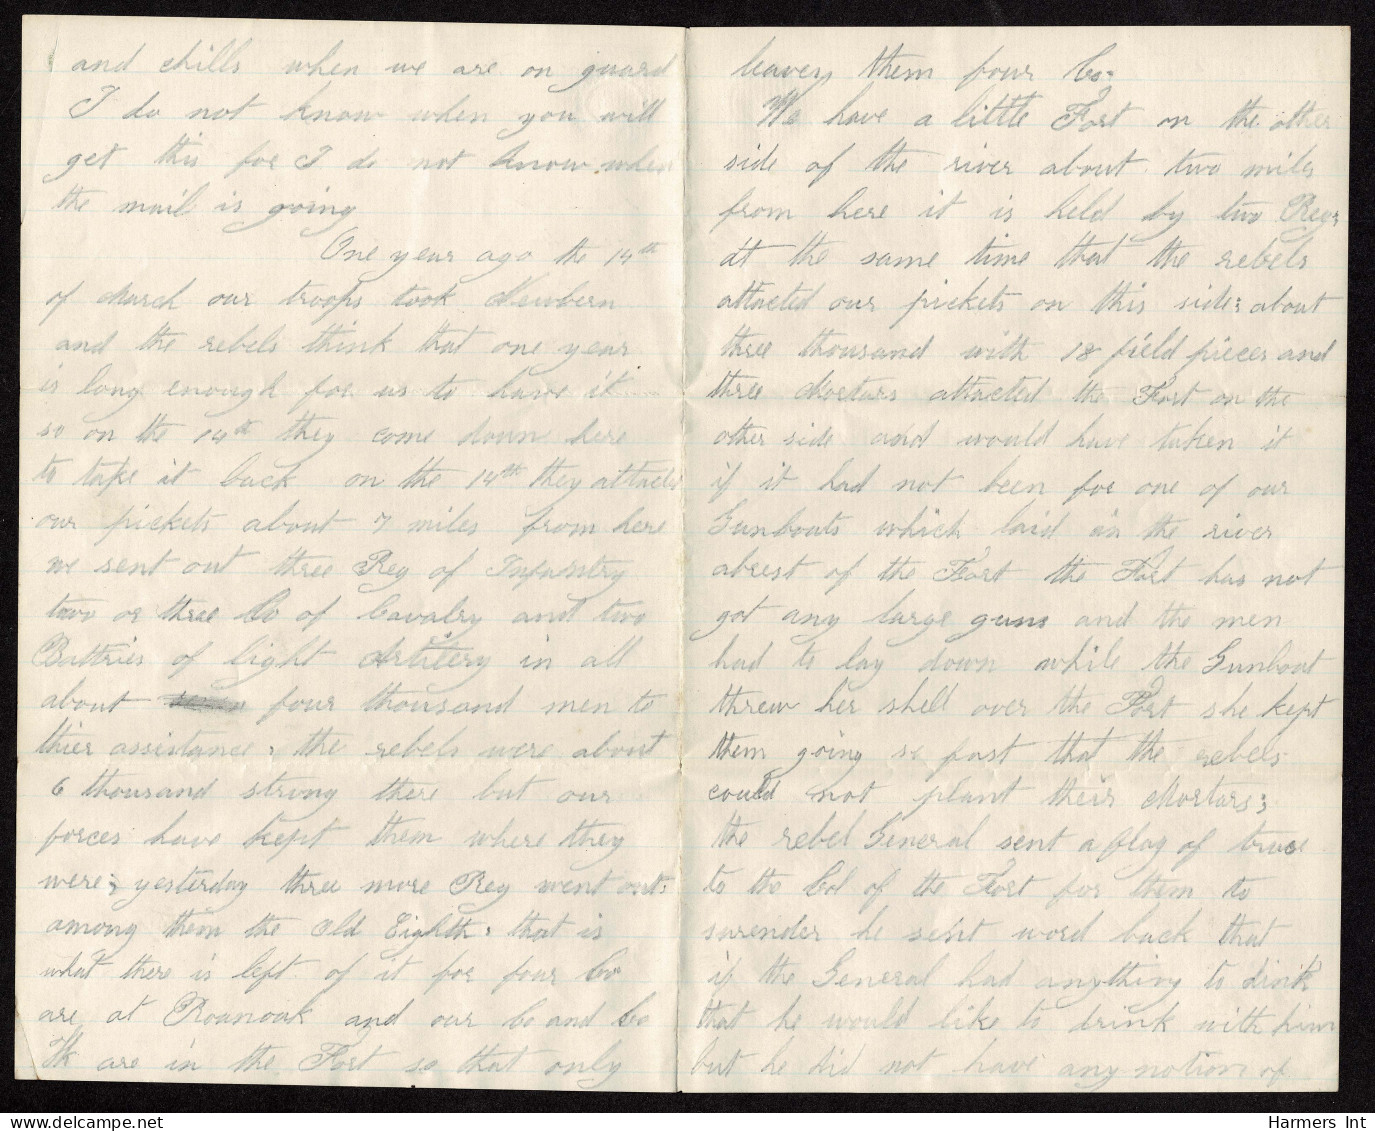 and chills when we are on guard
I do not know when you will
get this for I do not know when
the mail is going
One year ago the 14th
of March our troops took Newbern
and the rebels think that one year
is long enough for us to have it
so on the 14th they come down here
to take it back on the 14th they attacted
our pickets about 7 miles from here
we sent out three Reg of Infantry
two or three Co of Cavalry and two
Battries of light Artilery in all
about four thousand men to
thier assistance, the rebels were about
6 thousand strong there but our
forces have kept them where they
were; yesterday three more Reg went out:
among them the Old Eighth, that is
what there is left of it for four Co
are at Roanoak and our Co and Co
K are in the Fort so that only
leaves them four Co:
We have a little Fort on the other
side of the river about two miles
from here it is held by two Regs
At the same time that the rebels
attacted our pickets on this side; about
three thousand with 18 field pieces and
three Mortars attacted the Fort on the
other side and would have taken it
if it had not been for one of our
Gunboats which laid in the river
abrest of the Fort the Fort has not
got any large guns and the men
had to lay down while the Gunboat
threw her shell over the Fort she kept
them going so fast that the rebels
could not plant their Mortars;
the rebel General sent a flag of truce
to the Col of the Fort for them to
surender he sent word back that
if the General had anything to drink
that he would like to drink with him
but he did not have any notion of
Harmers Int